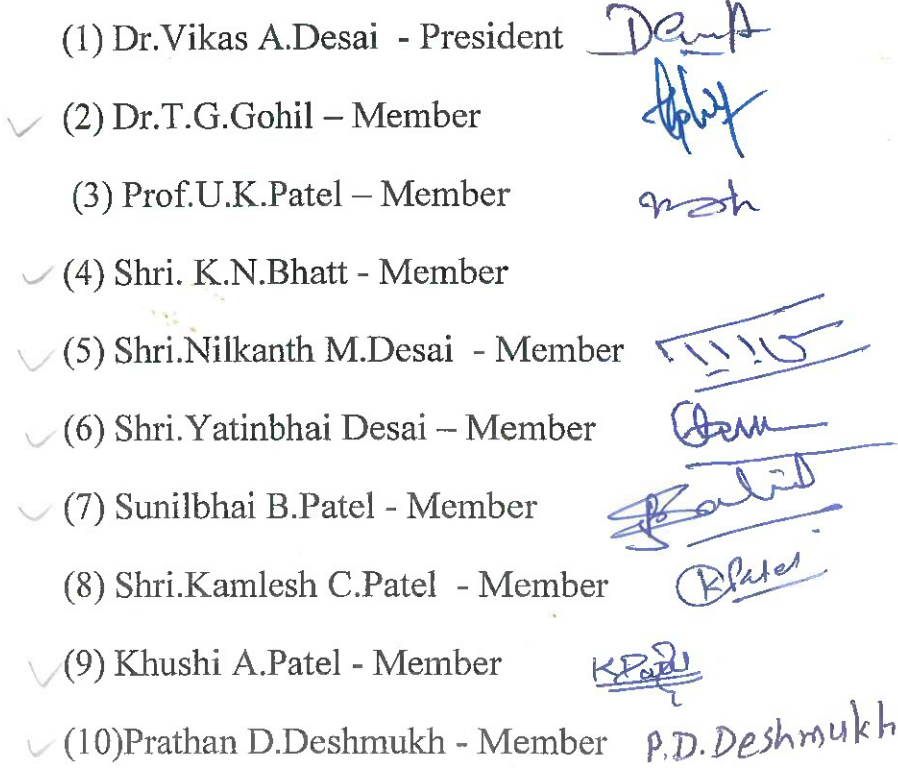 (1) Dr.Vikas A.Desai - President
(2) Dr.T.G.Gohil – Member
(3) Prof.U.K.Patel – Member
(4) Shri. K.N.Bhatt - Member
(5) Shri.Nilkanth M.Desai - Member
(6) Shri.Yatinbhai Desai – Member
(7) Sunilbhai B.Patel - Member
(8) Shri.Kamlesh C.Patel - Member KPatel
(9) Khushi A.Patel - Member
(10)Prathan D.Deshmukh - Member P.D.Deshmukh